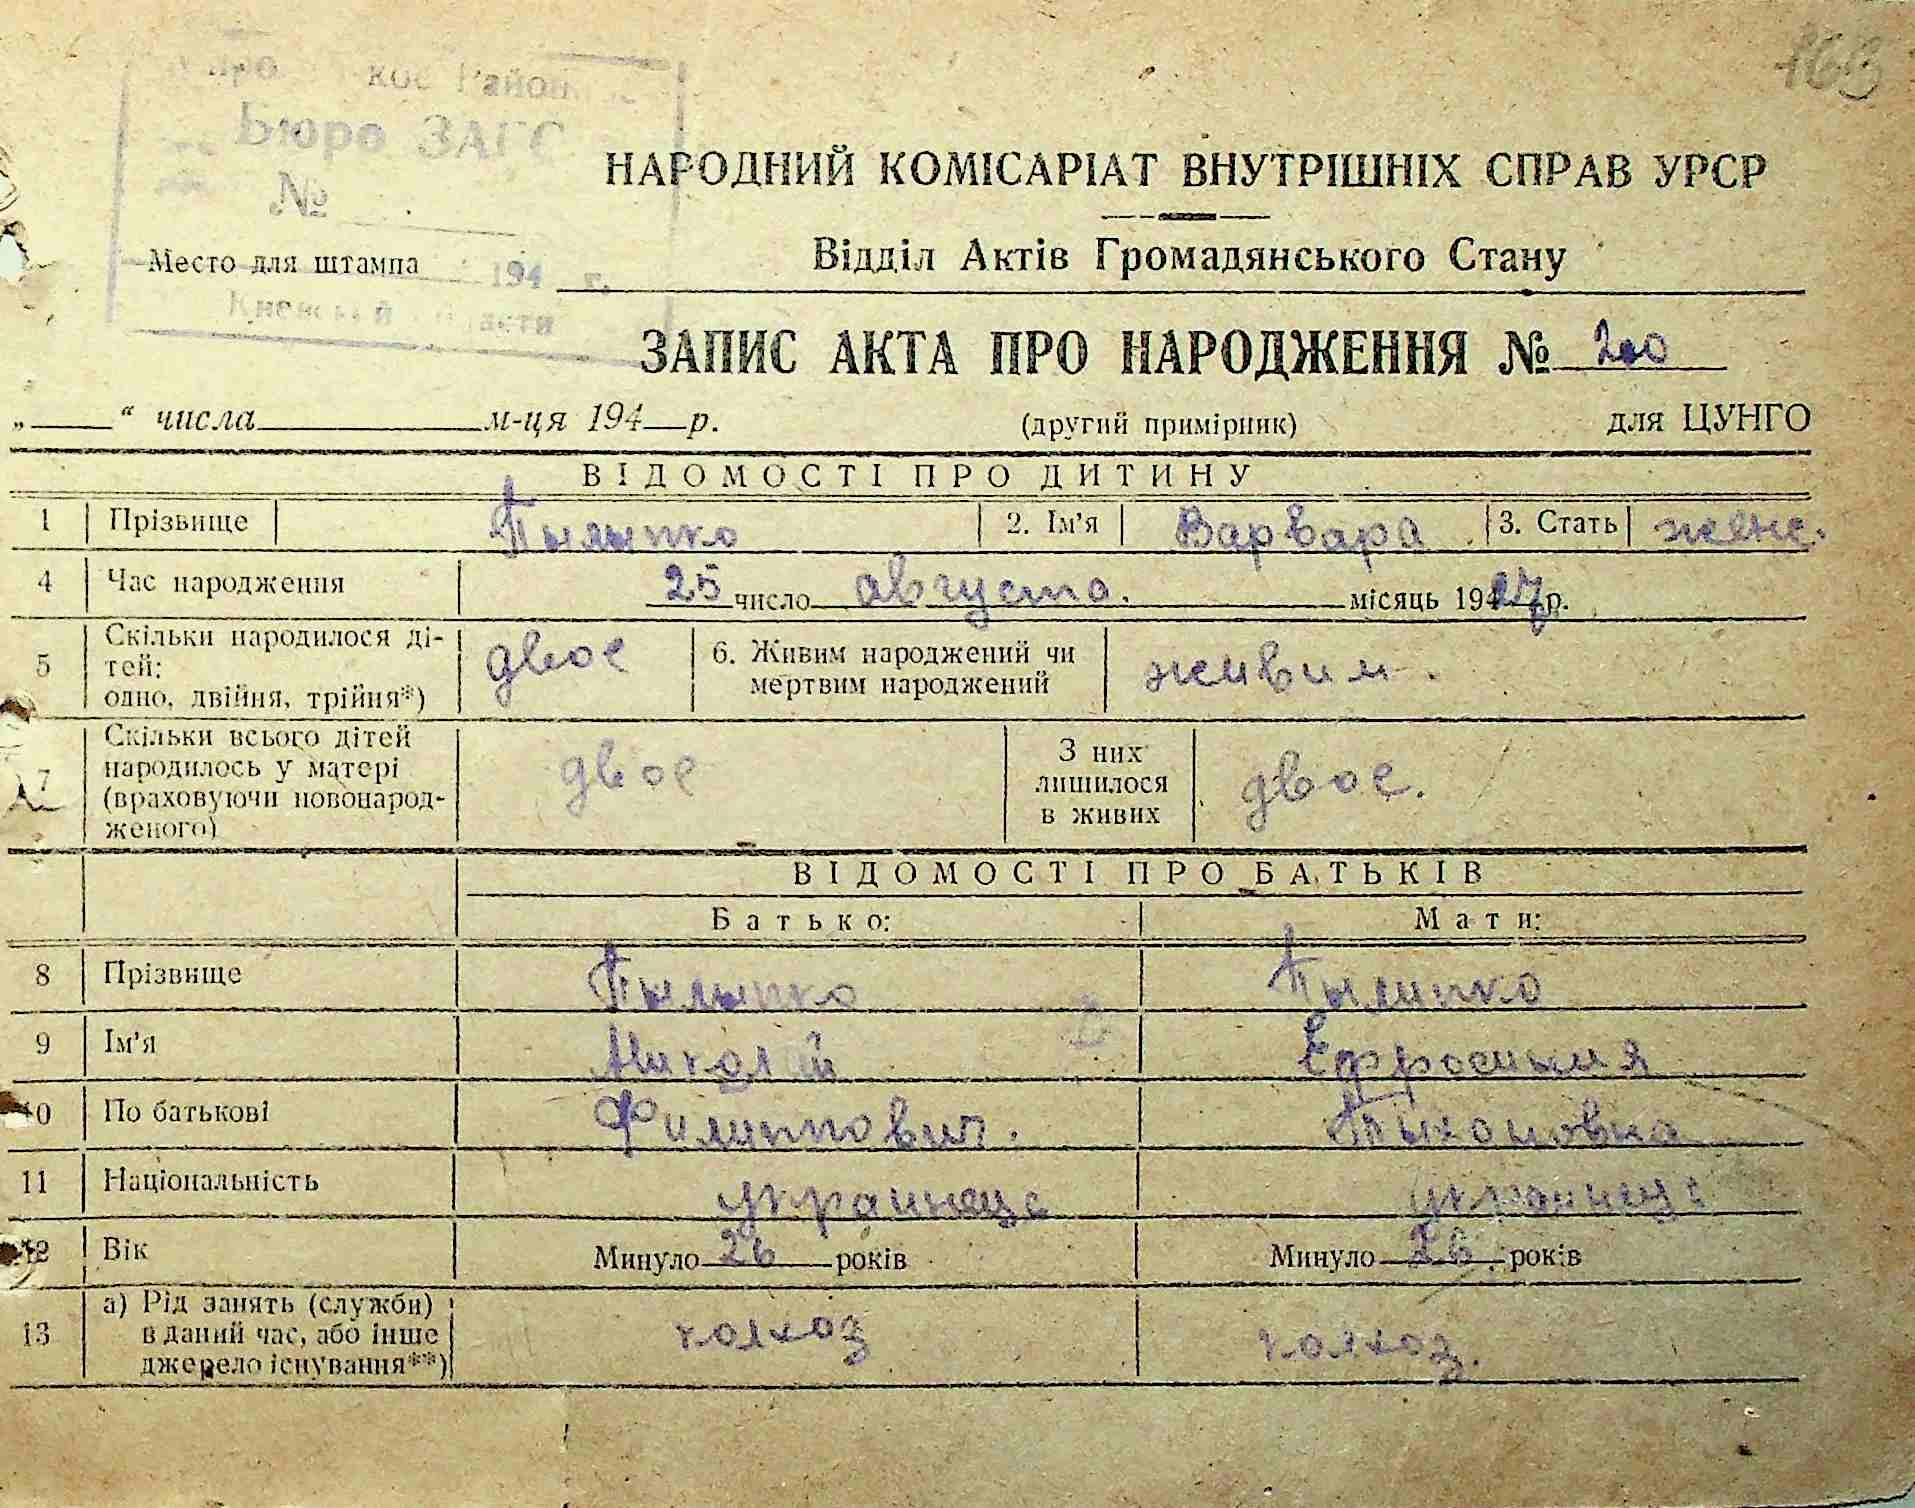 163
Бюро ЗАГС
№
Место для штампа 194 г.
НАРОДНИЙ КОМІСАРІАТ ВНУТРІШНІХ СПРАВ УРСР
Відділ Актів Громадянського Стану
ЗАПИС АКТА ПРО НАРОДЖЕННЯ № 200
„ “ числа м-ця 194 р. (другий примірник) для ЦУНГО
ВІДОМОСТІ ПРО ДИТИНУ
1 Прізвище Пылыпко 2. Ім'я Варвара 3. Стать женс.
4 Час народження 25 число августа. місяць 1927 р.
5 Скільки народилося ді-
тей:
одно, двійня, трійня*) двое 6. Живим народжений чи
мертвим народжений живим.
7 Скільки всього дітей
народилось у матері
(враховуючи новонарод-
женого) двое З них
лишилося
в живих двое.
ВІДОМОСТІ ПРО БАТЬКІВ
Батько: Мати:
8 Прізвище Пылыпко Пылипко
9 Ім'я Николай Ефросиния
10 По батькові Филиппович. Тыхоновна
11 Національність украинец украинец
12 Вік Минуло 26 років Минуло 26 років
13 а) Рід занять (служби)
в даний час, або інше
джерело існування**) колхоз колхоз.